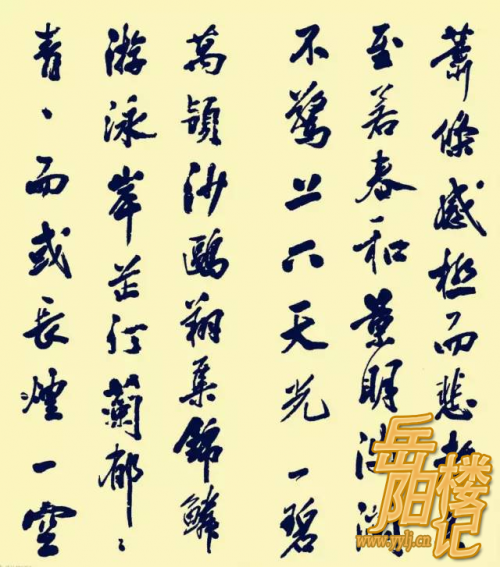 蕭條感極而悲者
至若春和景明波瀾
不驚上下天光一碧
萬頃沙鷗翔集錦鱗
游泳岸芷汀蘭郁〻
青〻而或長煙一空
岳阳楼记
www.yylj.cn